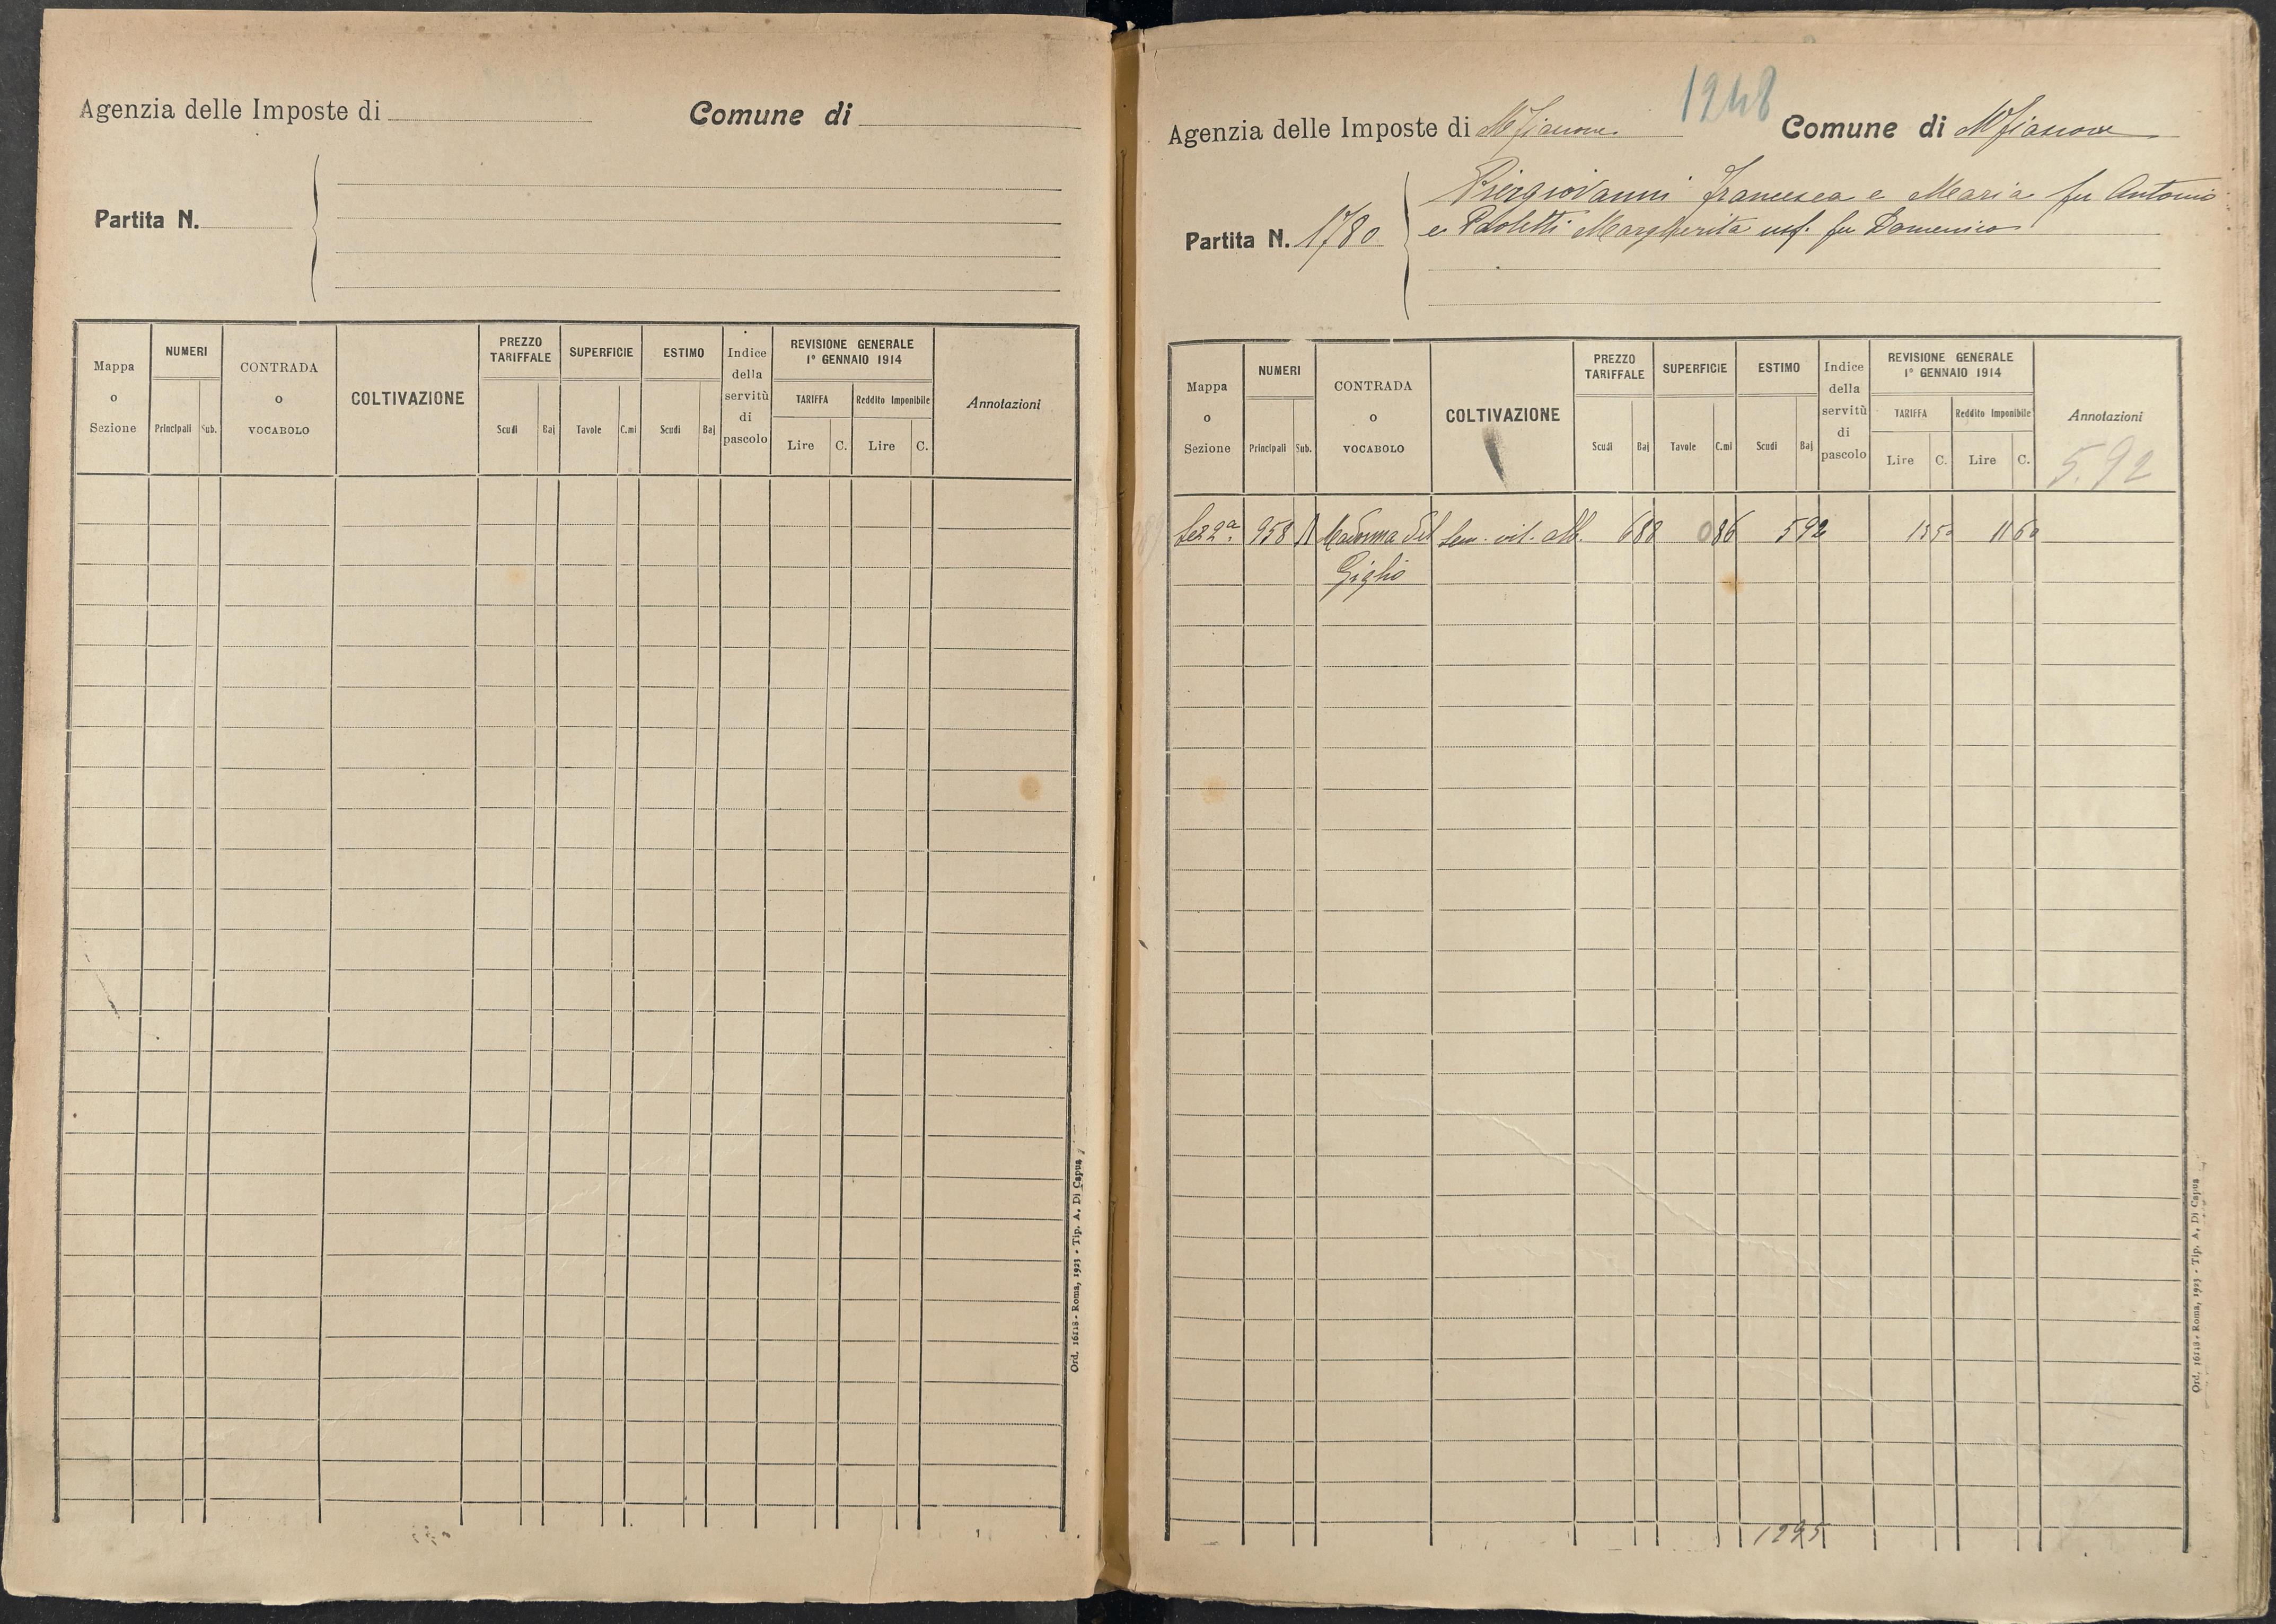 Agenzia delle Imposte di
Comune di
Partita N.
Mappa o Sezione
NUMERI
Principali
Sub.
CONTRADA O VOCABOLO
COLTIVAZIONE
PREZZO TARIFFALE
Scudi
Baj
SUPERFICIE
Tavole
C.mi
ESTIMO
Scudi
Baj
Indice della servitù di pascolo
REVISIONE GENERALE
1° GENNAIO 1914
TARIFFA
Reddito Imponibile
Lire
C.
Lire
C.
Annotazioni
Ord. 16118 - Roma, 1923 - Tip. A. Di Capua
1248
Agenzia delle Imposte di Mfiascone
Comune di Mfiascone
Partita N. 1780
Piergiovanni Francesca e Maria fu Antonio
e Paoletti Margherita usf. fu Domenico
Mappa o Sezione
NUMERI
Principali
Sub.
CONTRADA O VOCABOLO
COLTIVAZIONE
PREZZO TARIFFALE
Scudi
Baj
SUPERFICIE
Tavole
C.mi
ESTIMO
Scudi
Baj
Indice della servitù di pascolo
REVISIONE GENERALE
1° GENNAIO 1914
TARIFFA
Reddito Imponibile
Lire
C.
Lire
C.
Annotazioni
5.92
Sez 2a. 958 Madonna del Sem. vit. alb. 688 086 592 1350 1160
Giglio
1295
Ord. 16118 - Roma, 1923 - Tip. A. Di Capua